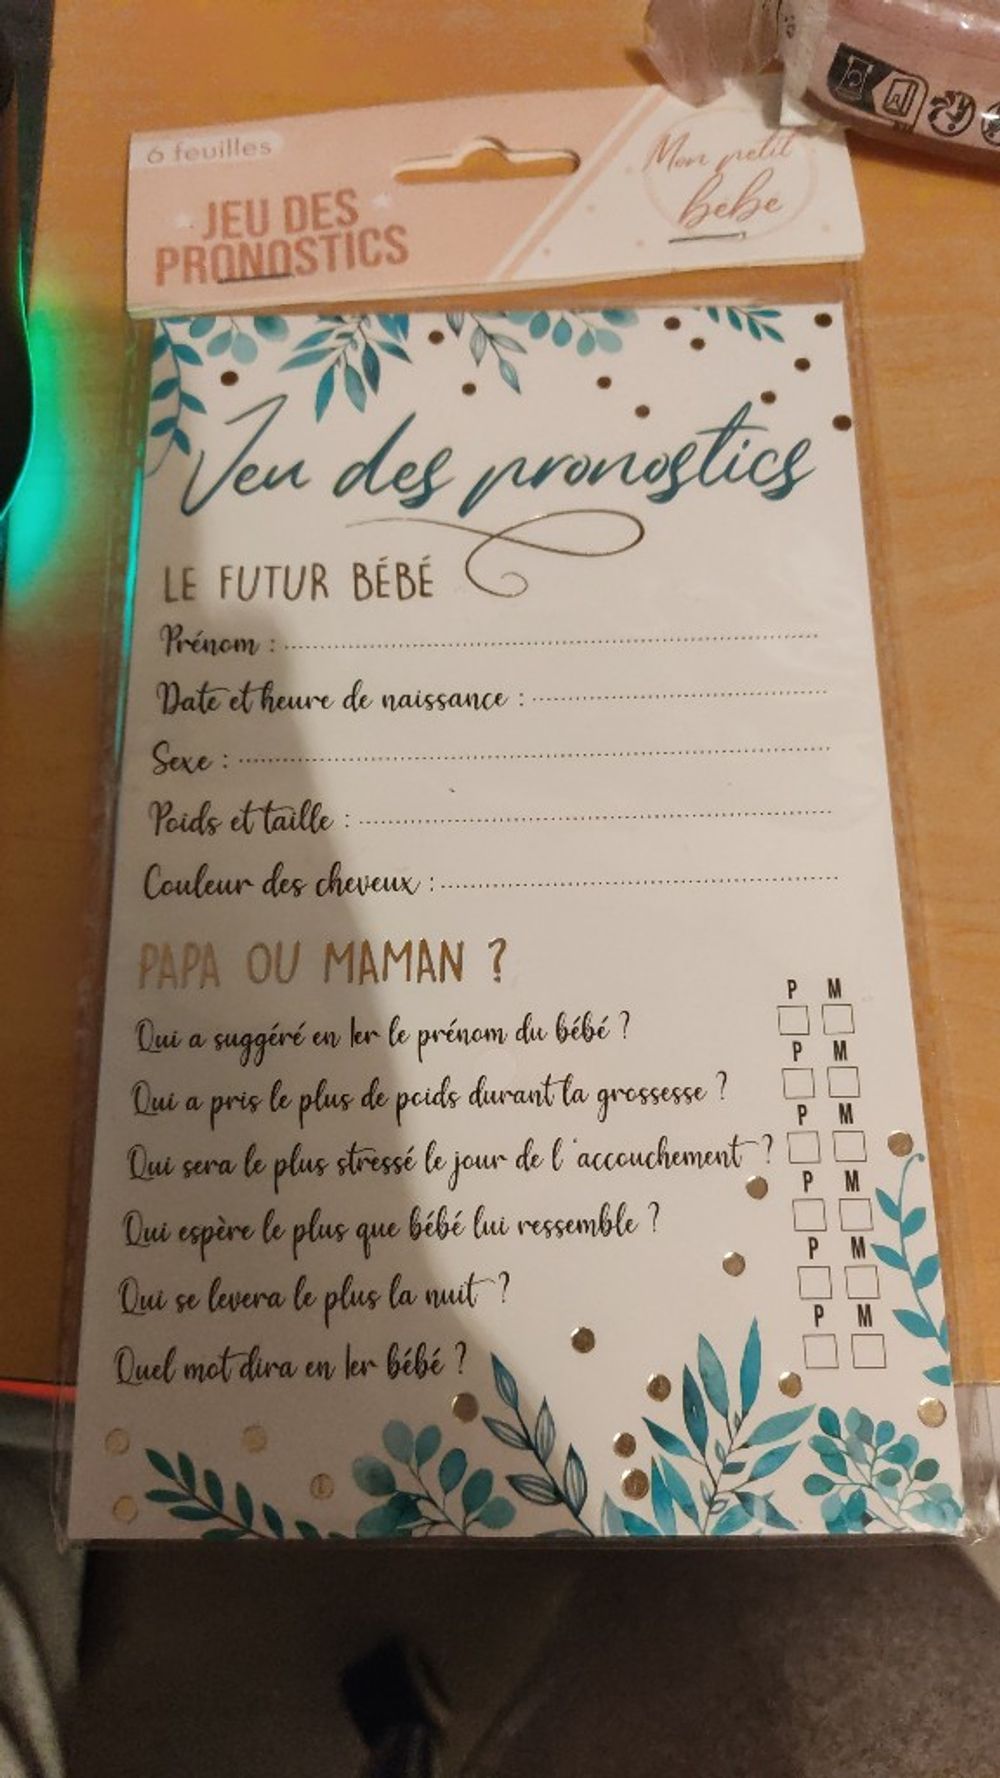 6 feuilles
JEU DES
PRONOSTICS
Mon petit
bébé
Jeu des pronostics
LE FUTUR BÉBÉ
Prénom :
Date et heure de naissance :
Sexe :
Poids et taille :
Couleur des cheveux :
PAPA OU MAMAN ?
P M
Qui a suggéré en 1er le prénom du bébé ?
P M
Qui a pris le plus de poids durant la grossesse ?
P M
Qui sera le plus stressé le jour de l'accouchement ?
P M
Qui espère le plus que bébé lui ressemble ?
P M
Qui se levera le plus la nuit ?
P M
Quel mot dira en 1er bébé ?